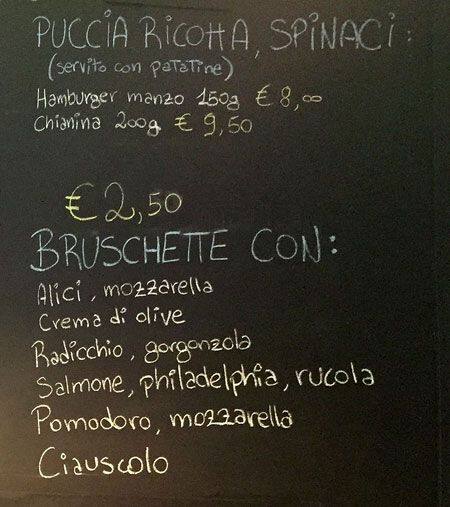 PUCCIA RICOTTA, SPINACI:
(servito con patatine)
Hamburger manzo 150g € 8,00
Chianina 200g € 9,50
€2,50
BRUSCHETTE CON:
Alici, mozzarella
Crema di olive
Radicchio, gorgonzola
Salmone, philadelphia, rucola
Pomodoro, mozzarella
Ciauscolo